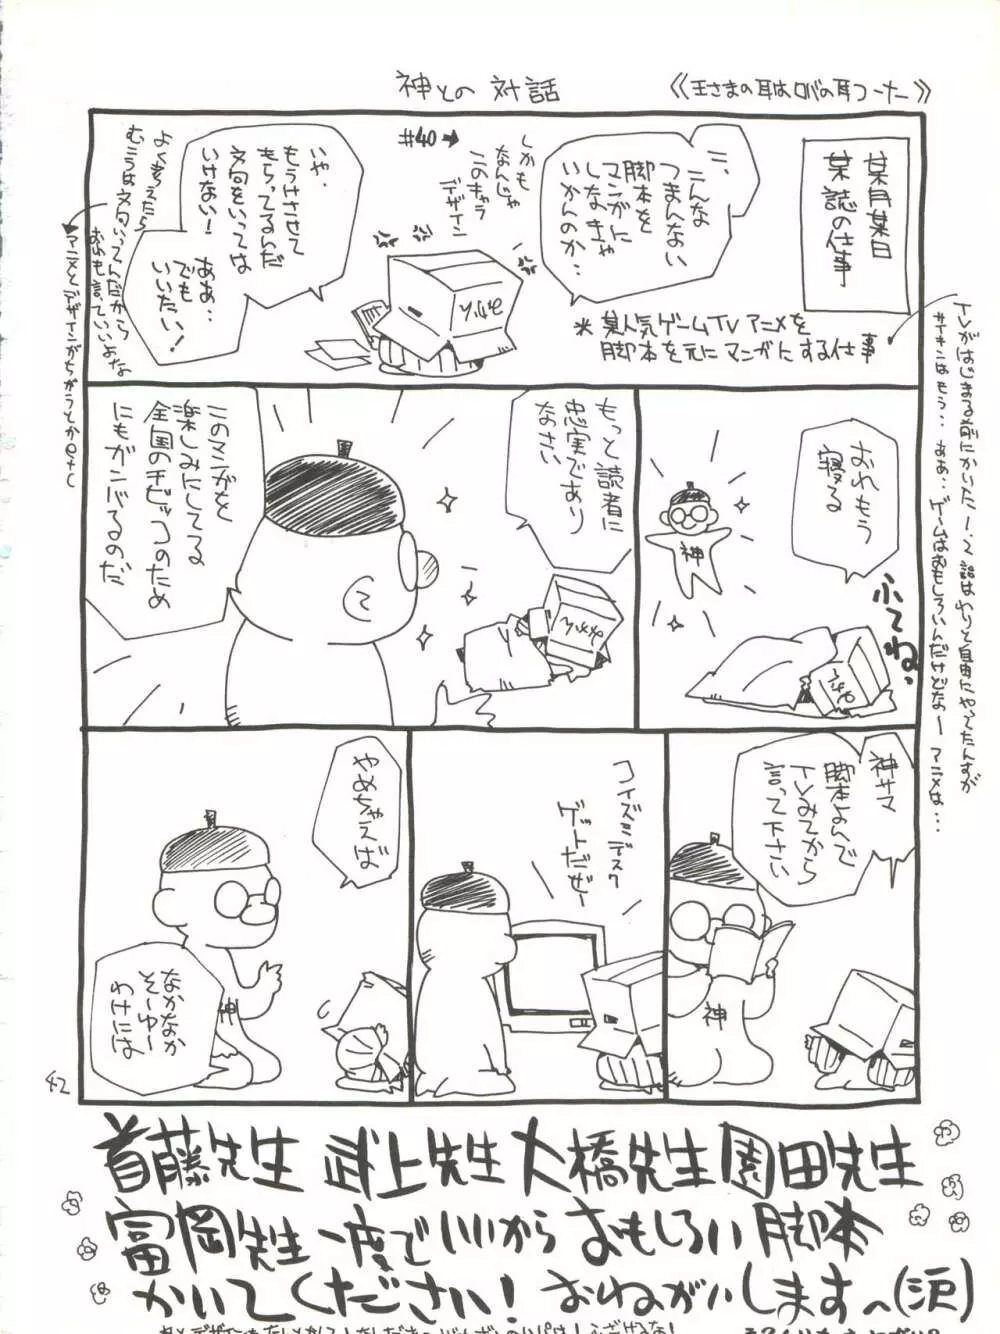 神との対話
《王さまの耳はロバの耳コーナー》
某月某日
某誌の仕事
こ、こんな
つまんない
脚本を
マンガに
しなきゃ
いかんのか…
しかも
なんじゃ
このキャラ
デザイン
#40→
いや、
もうけさせて
もらってるんだ
文句をいっては
いけない!
ああ…
でも
いいたい!
よく考えたら
むこうは文句いってんだから
おれも言っていいよな
アニメとデザインがちがうとかetc
*某人気ゲームTVアニメを
脚本を元にマンガにする仕事
TVがはじまる前にかいた1、2話はわりと自由にやってたんすが
サイキンはもう…ああ…ゲームはおもしろいんだけどなー アニメは…
おれもう
寝る
ふてね。
神
もっと読者に
忠実であり
なさい
このマンガを
楽しみにしてる
全国のチビッコのため
にもガンバるのだ
神サマ
脚本よんで
TVみてから
言って下さい
神
ゲットだぜー
やめちゃえば
なかなか
そーゆー
わけには
神
42
首藤先生 武上先生 大橋先生 園田先生
富岡先生 一度でいいから おもしろい脚本
かいてください! おねがいしますへ(涙)